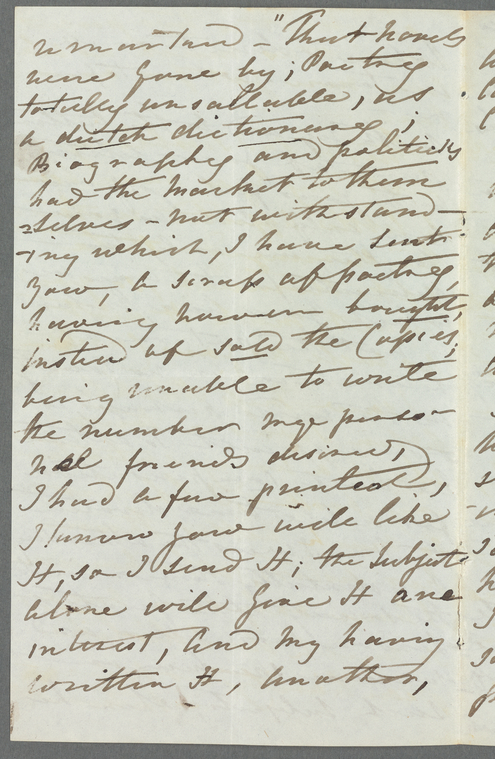 "That novels
were gone by; Poetry
totally unsaleable, as
a dutch dictionary;
Biography and politicks
had the market to them
=selves - not with stand-
-ing which, I have sent
you, a scrap of poetry,
having however bought,
insted of sold the Copies,
being unable to write
the number my perso-
nal friends desired,
I had a few printed,
I know you will like
It, so I send It; the Subject
alone will give It one
interest, and my having
written It, another,